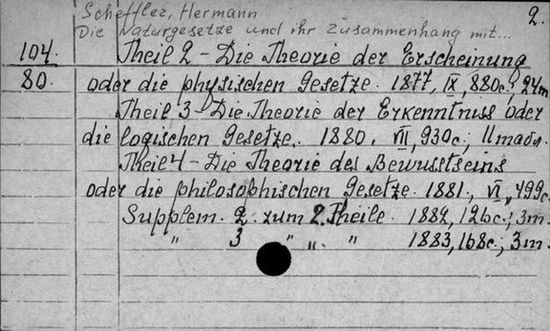 Scheffler, Hermann 2.
Die Naturgesetze und ihr Zusammenhang mit...
104. Theil 2 - Die Theorie der Erscheinung
80. oder die physischen Gesetze. 1877, IX, 880c.; 24m
Theil 3 - Die Theorie der Erkenntniss oder
die logischen Gesetze. 1880. VII, 930c.; 11табл.
Theil 4 - Die Theorie des Bewusstseins
oder die philosophischen Gesetze. 1881., VI, 499c.
Supplem. 2. zum 2. Theile. 1882, 126c.; 3m.
" 3 " " " 1883, 168c.; 3m.